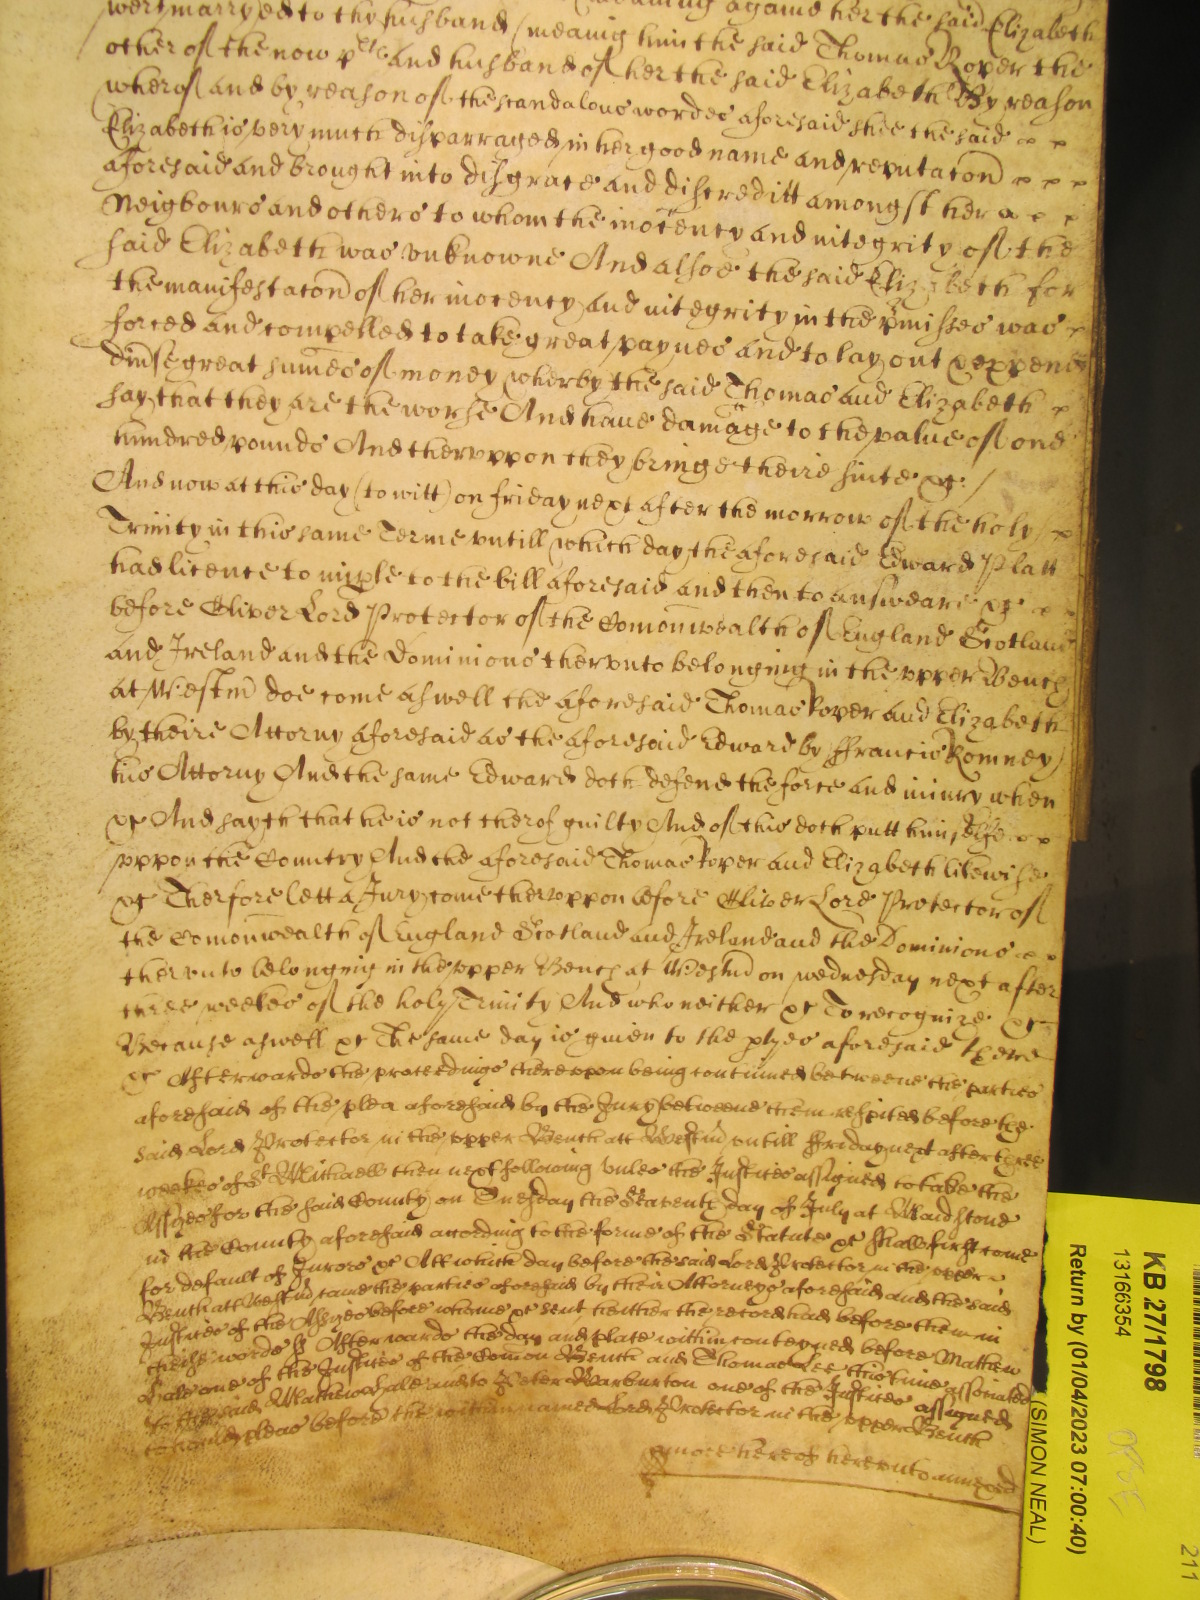 wert marryed to thy husband (meaning him the said Thomas Roper the
other of the now plts and husband of her the said Elizabeth By reason
wherof and by reason of the scandalous wordes aforesaid shee the said
Elizabeth is very much disparraged in her good name and reputacon
aforesaid and brought into disgrace and discreditt amongst her
Neigbours and others to whom the inocency and integrity of the
said Elizabeth was unknowne And alsoe the said Elizabeth for
the manifestacon of her inocency and integrity in the pmisses was
forced and compelled to take great paynes and to lay out & expend
divse great sumes of money wherby the said Thomas and Elizabeth
say that they are the worse And have damage to the value of one
hundred pounds And theruppon they bringe theire suite &c: /
And now at this day (to witt) on friday next after the morrow of the holy
Trinity in this same Terme untill which day the aforesaid Edward Platt
had licence to imple to the bill aforesaid and then to answeare &c
before Oliver Lord Protector of the Comonwealth of England Scotland
and Ireland and the Dominions therunto belonging in the upper Bench
at Westm doe come aswell the aforesaid Thomas Roper and Elizabeth
by theire Attorny aforesaid as the aforesaid Edward by Ffrancis Romney
his Attorny And the same Edward doth defend the force and iniury when
&c And sayth that he is not therof guilty And of this doth putt himselfe
uppon the Country And the aforesaid Thomas Roper and Elizabeth likewise
&c Therfore lett a Jury come theruppon before Oliver Lord Protector of
the Comonwealth of England Scotland and Ireland and the Dominions
therunto belonging in the upper Bench at Westm on wednesday next after
three weekes of the holy Trinity And who neither &c To recognize &c
Because aswell &c The same day is given to the ptyes aforesaid there
&c Afterwards the proceedings thereupon being continued betweene the parties
aforesaid of the plea aforesaid by the Jury betweene them respited before the
said Lord Protector in the upper Bench att Westm untill Ffriday next after three
weekes of St Michaell then next following unles the Justices assigned to take the
Assizes for the said County on Tuesday the Seaventh day of July at Maidstone
in the County aforesaid according to the forme of the Statute &c shall first come
for default of Jurors &c Att which day before the said Lord Protector in the upper
Bench att Westm came the parties aforesaid by their Attorneys aforesaid and the said
Justices of the Assizes before whome &c sent heither the record had before them in
theise words ss Afterwards the day and place within conteyned before Mathew
Hale one of the Justices of the Comon Bench and Thomas Lee this time associated
to the said Mathew Hale and to Peter Warburton one of the Justices assigned
to hould pleas before the within named Lord Protector in the upper Bench
more hereof hereunto annexed
KB 27/1798
13166354
Return by (01/04/2023 07:00:40)
(SIMON NEAL)
211